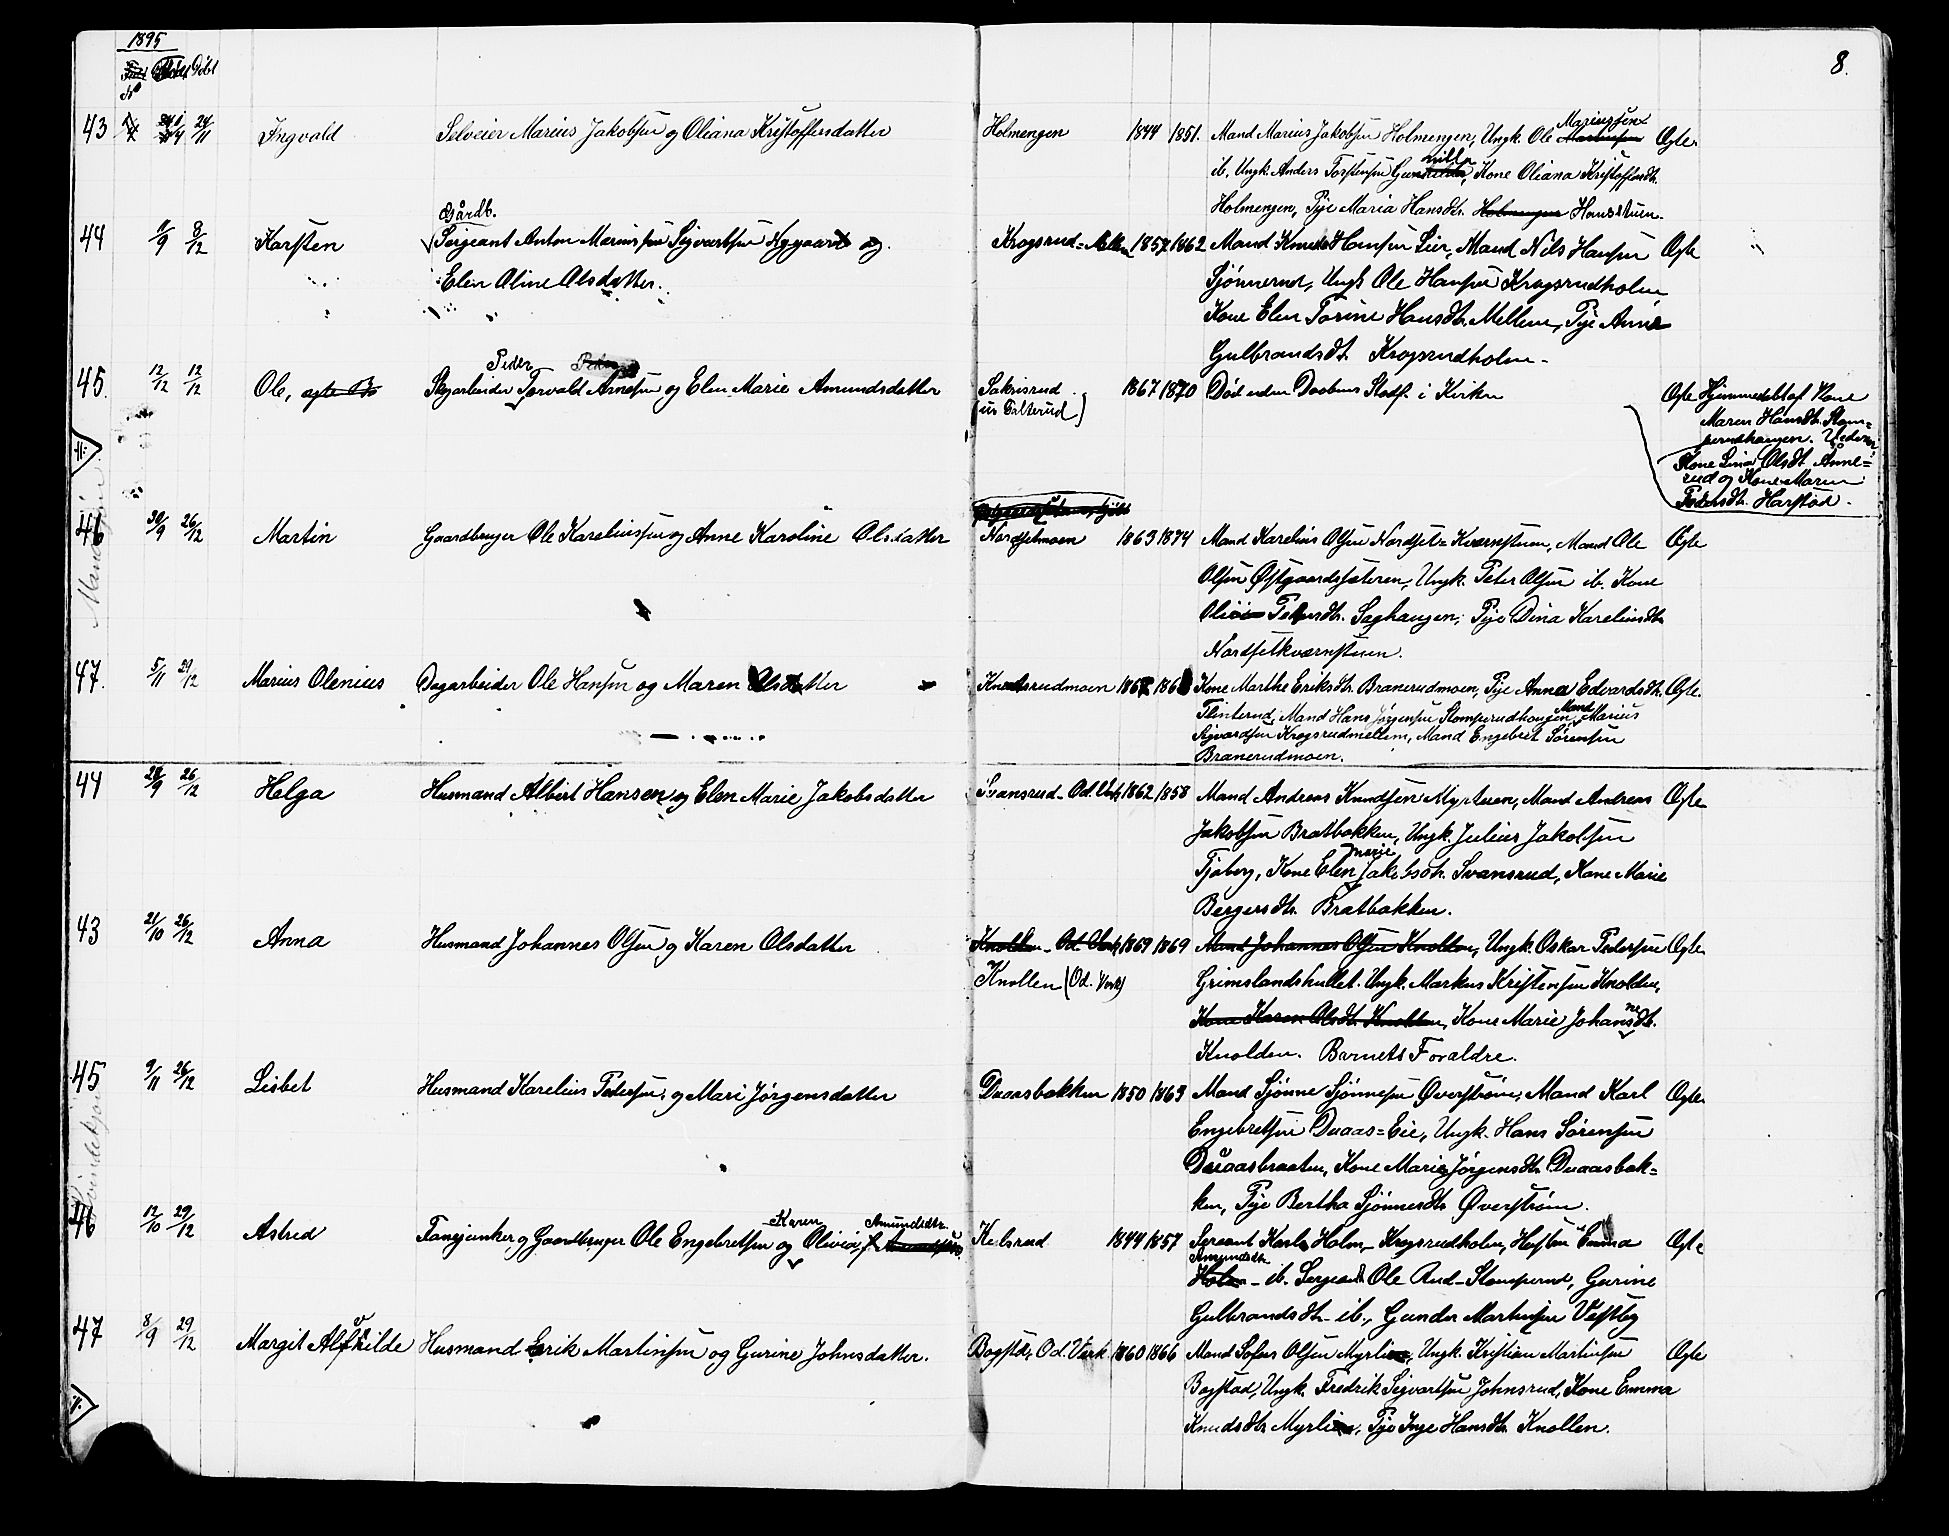 1895
8.
No Født Døbt
43 24/11 Ingvald Selveier Marius Jakobsen og Oliana Kristoffersdatter Holmengen 1844 1851. Mand Marius Jakobsen Holmengen, Ungk. Ole Mariussen Ægte.
ib, Ungk. Anders Torstensen, Kone Oliana Kristoffersdtr.
Holmengen, Pige Maria Hansdtr. Holmengen Hansstuen.
Gårdb.
44 9/9 8/12 Karsten Sergeant Anton Mariussen Sigvartsen Nygaard og Krogsrud=Mellem 1857 1862 Mand Knud Hansen Lier, Mand Nils Hansen Ægte
Elen Aline Olsdatter. Sjønnerud, Ungk Ole Hansen Krogsrudholm
Kone Elen Torine Hansdtr. Mellem, Pige Anne
Gulbrandsdt. Krogsrudholm.
Peder
45. 12/12 12/12 Ole, ægte B. Dagarbeider Torvald Arnesen og Elen Marie Amundsdatter Sakrisrud 1867 1870 Død uden Daaben Stadf. i Kirken Ægte Hjemmedøbt af Kone
(us Falkerud) Maren Hansdtr. Stom=
perudhaugen. Vidner:
Kone Lina Olsdt. Anne=
rud og Kone Maren
Pedersdtr. Harstad.
Mandkjøn
46 30/9 26/12 Martin Gaardbruger Ole Kareliussen og Anne Karoline Olsdatter Nordsetmoen 1863 1874 Mand Karelius Olsen Nordset=Kværnstuen, Mand Ole Ægte
Olsen Østgaardsæteren, Ungk. Peter Olsen ib. Kone
Pedersdtr. Saghaugen, Pige Dina Kareliusdtr.
Nordsetkværnstuen.
47. 5/11 29/12 Marius Olenius Dagarbeider Ole Hansen og Maren Olsdatter Knatsrudmoen Kone Marthe Eriksdtr. Branerudmoen, Pige Anna Edvardsdtr. Ægte.
Flinterud, Mand Hans Jørgensen Stomperudhaugen, Mand Marius
Sigvardsen Krogsrudmellem, Mand Engebret Sørensen
Branerudmoen.
44 28/9 26/12 Helga Husmand Albert Hansen og Elen Marie Jakobsdatter Svansrud - Od. Verk 1862 1858 Mand Andreas Knudsen Myrstuen, Mand Andreas Ægte
Jakobsen Bratbakken, Ungk. Julius Jakobsen
Tjøberg, Kone Elen Marie Jakobsdtr. Svansrud, Kone Marie
Bergersdtr. Bratbakken.
43 21/10 26/12 Anna Husmand Johannes Olsen og Karen Olsdatter Knollen - Od. Verk 1869 1869 Mand Johannes Olsen Knollen, Ungk. Oskar Pedersen Ægte
Knollen (Od. Verk) Grimslandshullet. Ungk. Markus Kristensen Knolden,
Kone Karen Olsdt. Knollen, Kone Marie Johannsdtr.
Knolden. Barnets Forældre.
45 9/11 26/12 Lisbet Husmand Karelius Pedersen og Mari Jørgensdatter Daaasbakken 1850 1863 Mand Sjønne Sjønnesen Øverstrøm, Mand Karl Ægte.
Engebretsen Daaas=Eie, Ungk. Hans Sørensen
Daaasbraaten, Kone Marie Jørgensdtr. Daaasbak=
ken, Pige Bertha Sjønnesdtr Øverstrøm.
Kvindekjøn
46 12/10 29/12 Astrid Fanejunker og Gaardbruger Ole Engebretsen og Karen Olivia Amundsdtr. Kelsrud 1844 1857 Sergeant Karl Holm - Krogsrudholm, Hustru Emma Ægte
Amundsdtr.
Holm - ib. Sergeant Ole Rud - Stomperud, Gurine
Gulbrandsdtr - ib., Gunder Martinsen Vestby
47 8/9 29/12 Margit Alfhilde Husmand Erik Martinsen og Gurine Johnsdatter. Bogstad, Od. Værk. 1860 1866 Mand Sofus Olsen Myrlien, Ungk. Kristian Martinsen Ægte
Bogstad, Ungk. Fredrik Sigvartsen Johnsrud, Kone Emma
Knudsdtr. Myrlien, Pige Inge Hansdtr. Knollen.